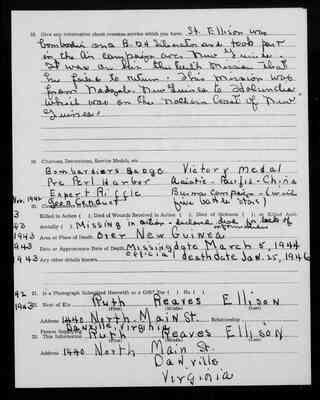 18. Give any information about overseas service which you have: Lt. Ellison was
bombardier on a B.24 Liberator and took part
in the air campaign over New Guinea.
It was on his
he failed to return. This mission was
from Nadzab, New Guinea to Hollandia
which was on the Northern Coast of New
Guinea.
19. Citations, Decorations, Service Medals, etc.
Bombardiers Badge Victory Medal
Pre Perl Harbor Asiatic-Pacific-China
Expert Riffle Burma Campaign - (with
Nov. 1942 Good Conduct five battle stars)
3
Killed in Action ( ). Died of Wounds Received in Action ( ). Died of Disease ( ).
3 Missing in action - declared dead by lack of
information
1943 Area or Place of Death Over New Guinea
943 Date or Approximate Date of Death Missing date March 5, 1944
943 Any other details known official death date Jan. 25, 1946
42 21. Is a Photograph Submitted Herewith or a Gift? Yes ( ) No ( )
1943 22. Next of Kin Ruth Reaves Ellison
(First) (Middle) (Last)
Address 1440 North Main St. Relationship
Danville, Virginia
Person Supplying
23. This Information Ruth Reaves Ellison
(First) (Middle) (Last)
Address 1440 North Main St.
Danville
Virginia